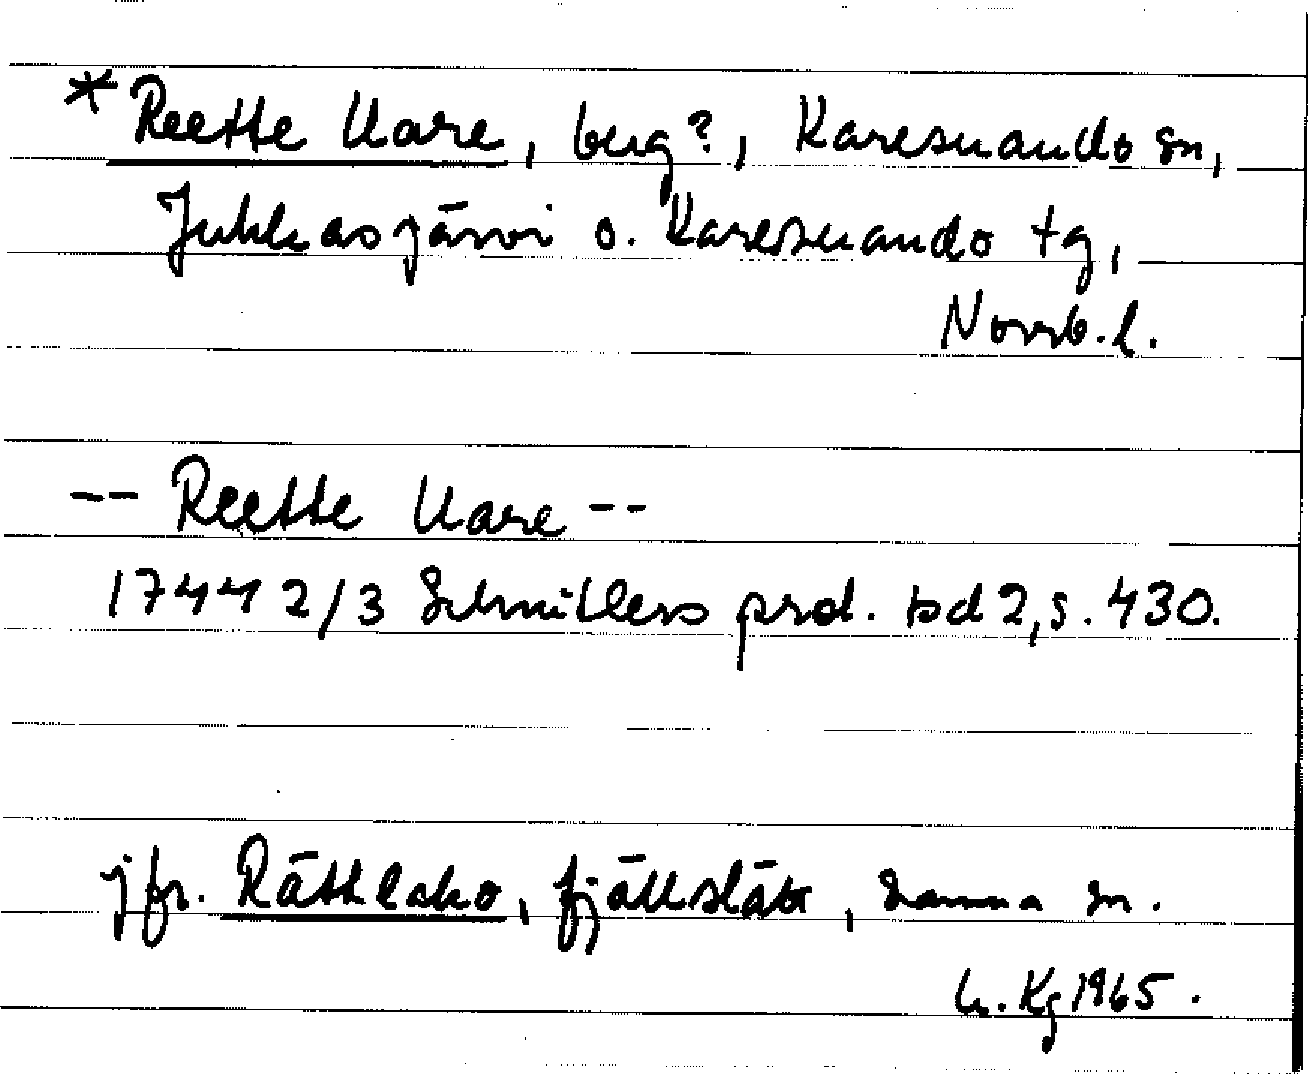 * Reette Uare, berg?, Karesuando sn,
Jukkasjärvi o. Karesuando tg,
Norrb. l.
-- Reette Uare --
1744 2/3 Schnitlers prd. bd 2, s. 430.
jfr. , fjällslätt, samma sn.
Kg 1965.